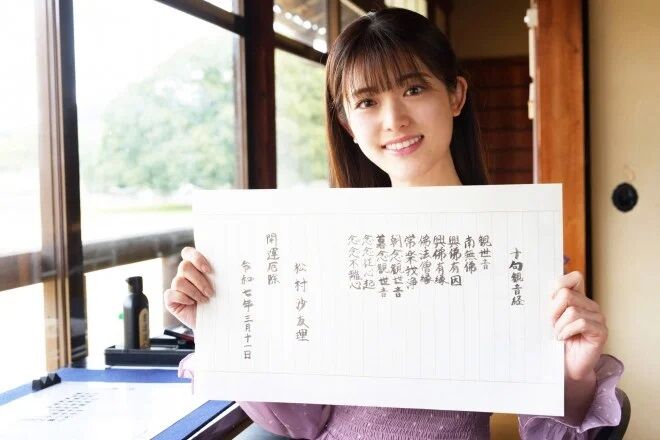 十句観音経
観世音
南無佛
與佛有因
與佛有縁
佛法僧縁
常楽我浄
朝念観世音
暮念観世音
念念従心起
念念不離心
松村沙友理
開運厄除
令和七年三月十一日